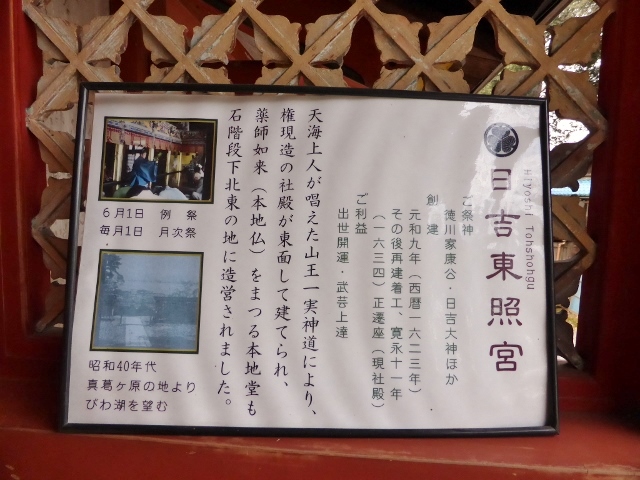 日吉東照宮
Hiyoshi Tohshohgu
ご祭神
徳川家康公・日吉大神ほか
創建
元和九年（西暦一六二三年）
その後再建着工、寛永十一年
（一六三四）正遷座（現社殿）
ご利益
出世開運・武芸上達
天海上人が唱えた山王一実神道により、
権現造の社殿が東面して建てられ、
薬師如来（本地仏）をまつる本地堂も
石階段下北東の地に造営されました。
6月1日 例祭
毎月1日 月次祭
昭和40年代
真葛ヶ原の地より
びわ湖を望む